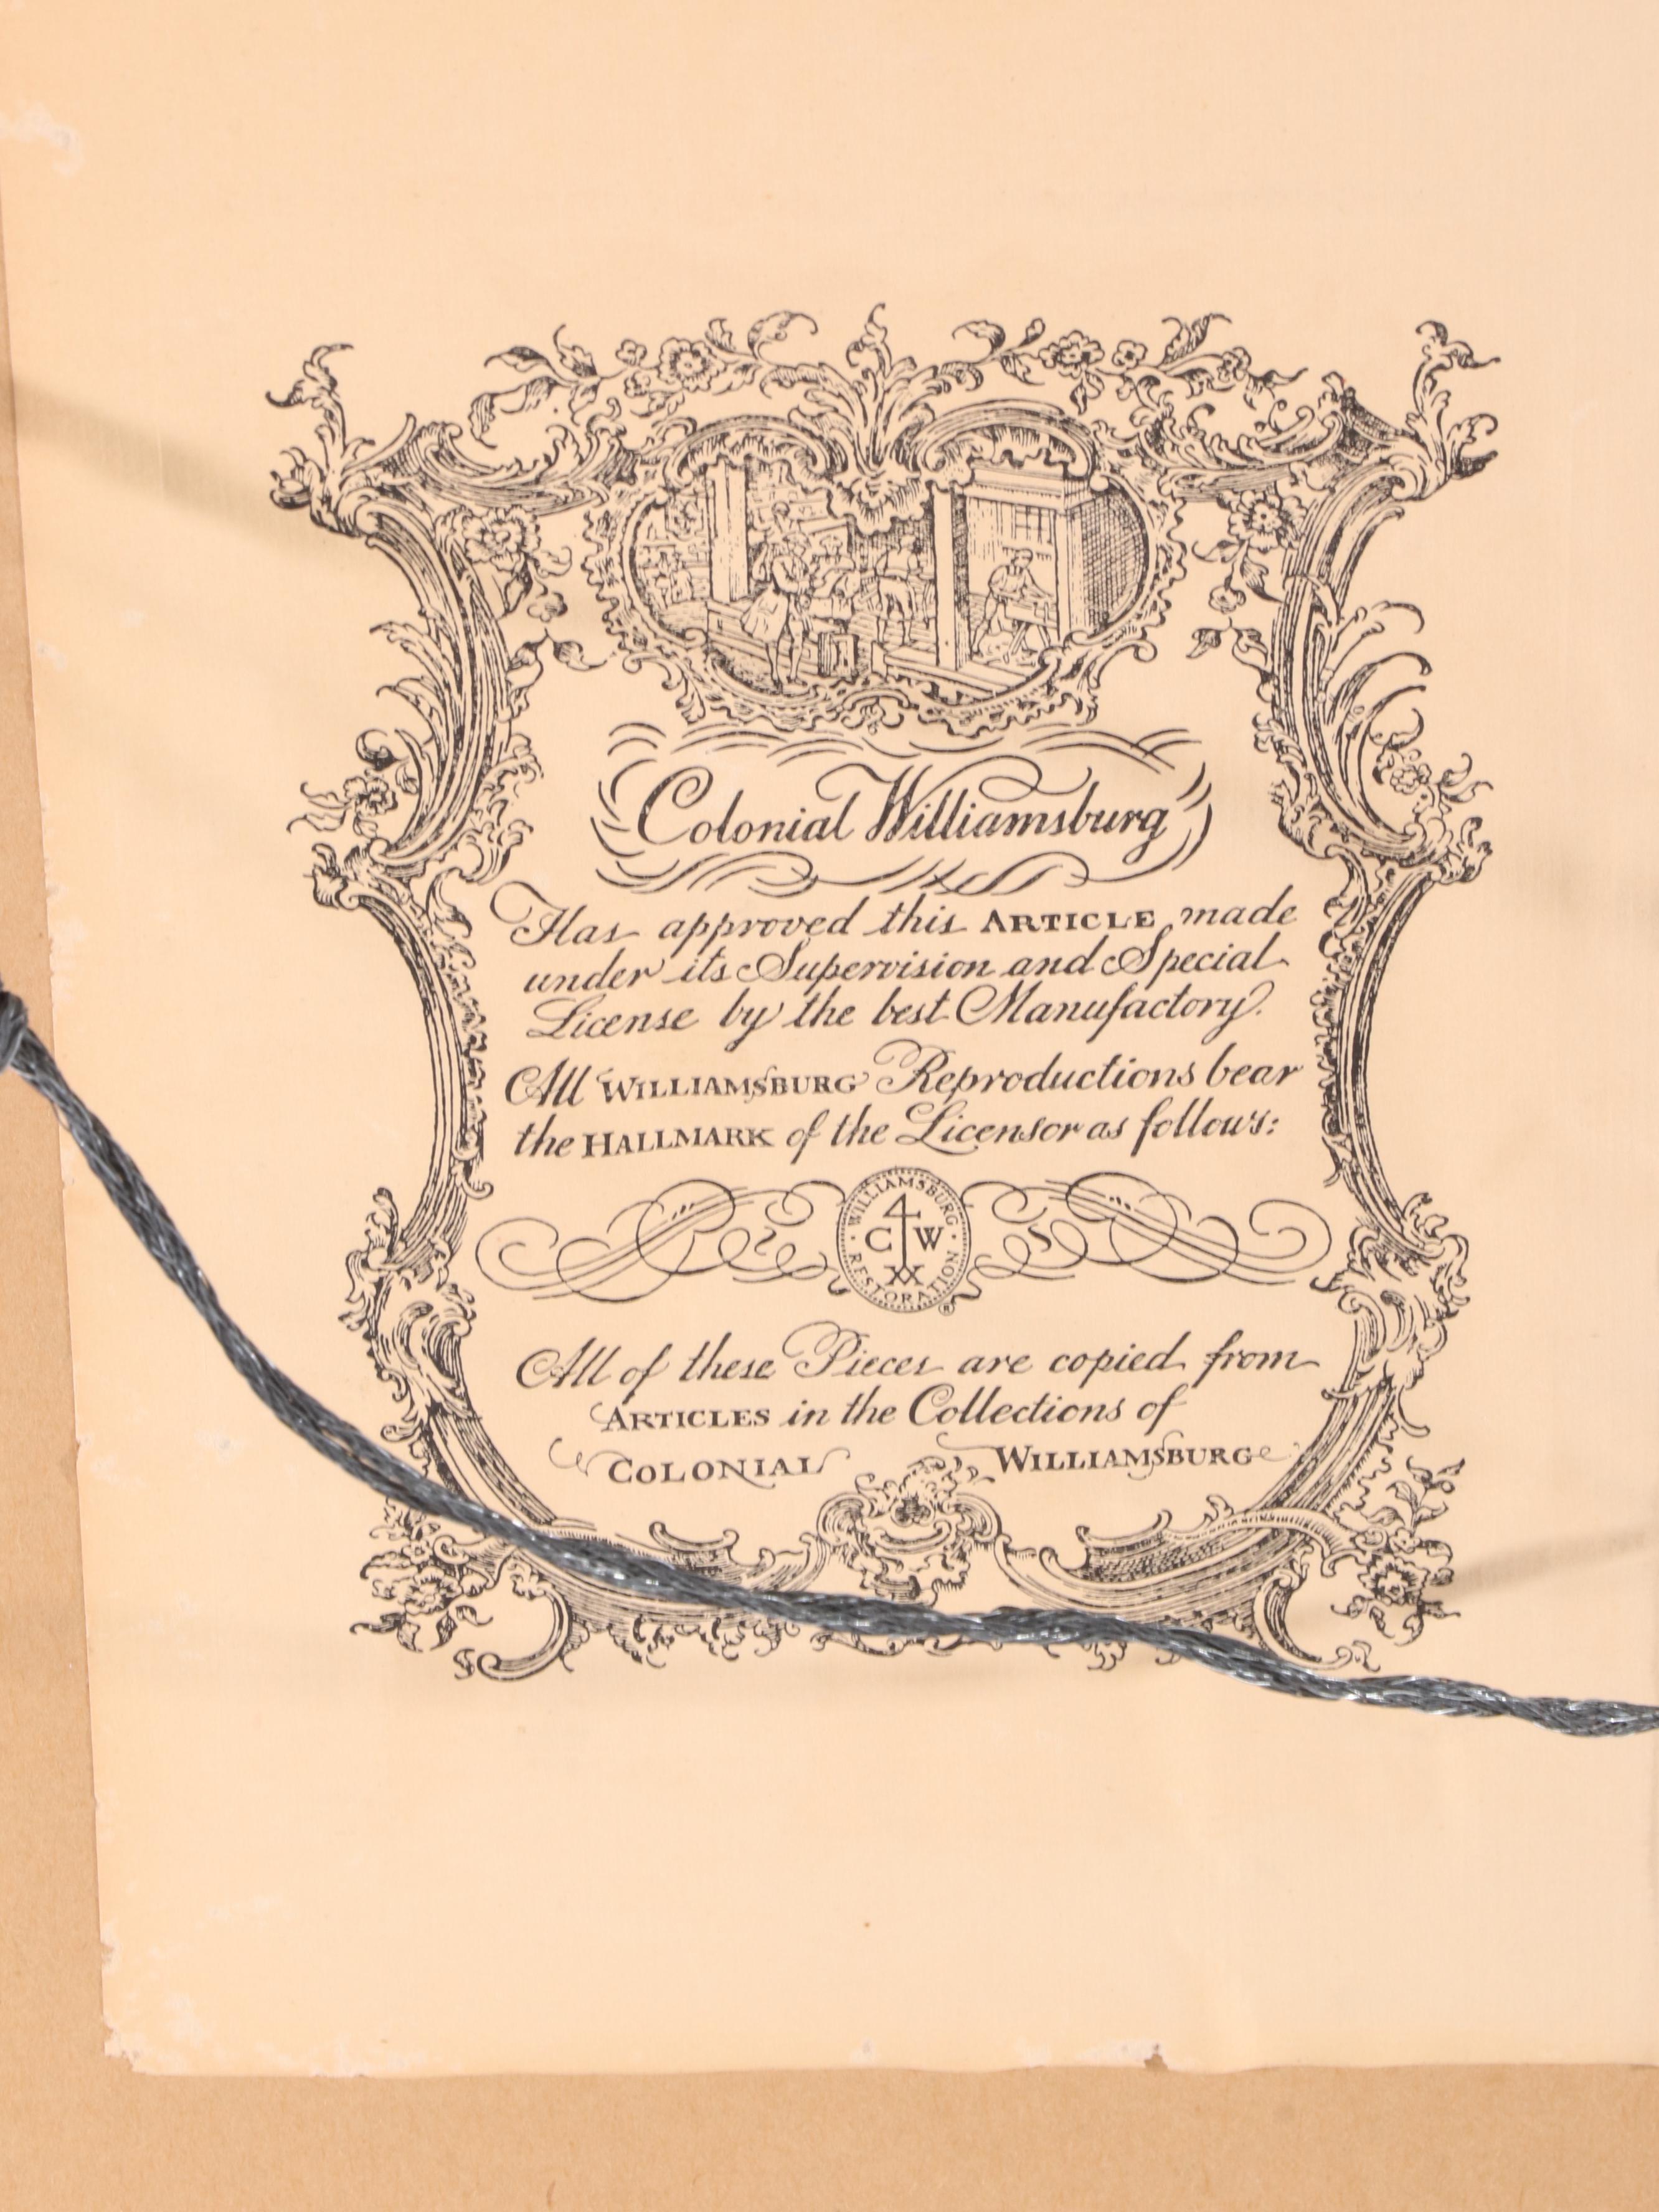 Colonial Williamsburg
Has approved this ARTICLE made
under its Supervision and Special
License by the best Manufactory.
All WILLIAMSBURG Reproductions bear
the HALLMARK of the Licensor as follows:
WILLIAMSBURG
C W
RESTORATION ®
All of these Pieces are copied from
ARTICLES in the Collections of
COLONIAL WILLIAMSBURG